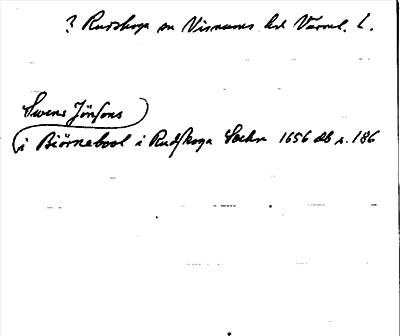 ? Rudskoga sn Visnums hd Värml. l.
Swens Jönsons
i Biörnebool i Rudskoga Sockn 1656 db s. 186